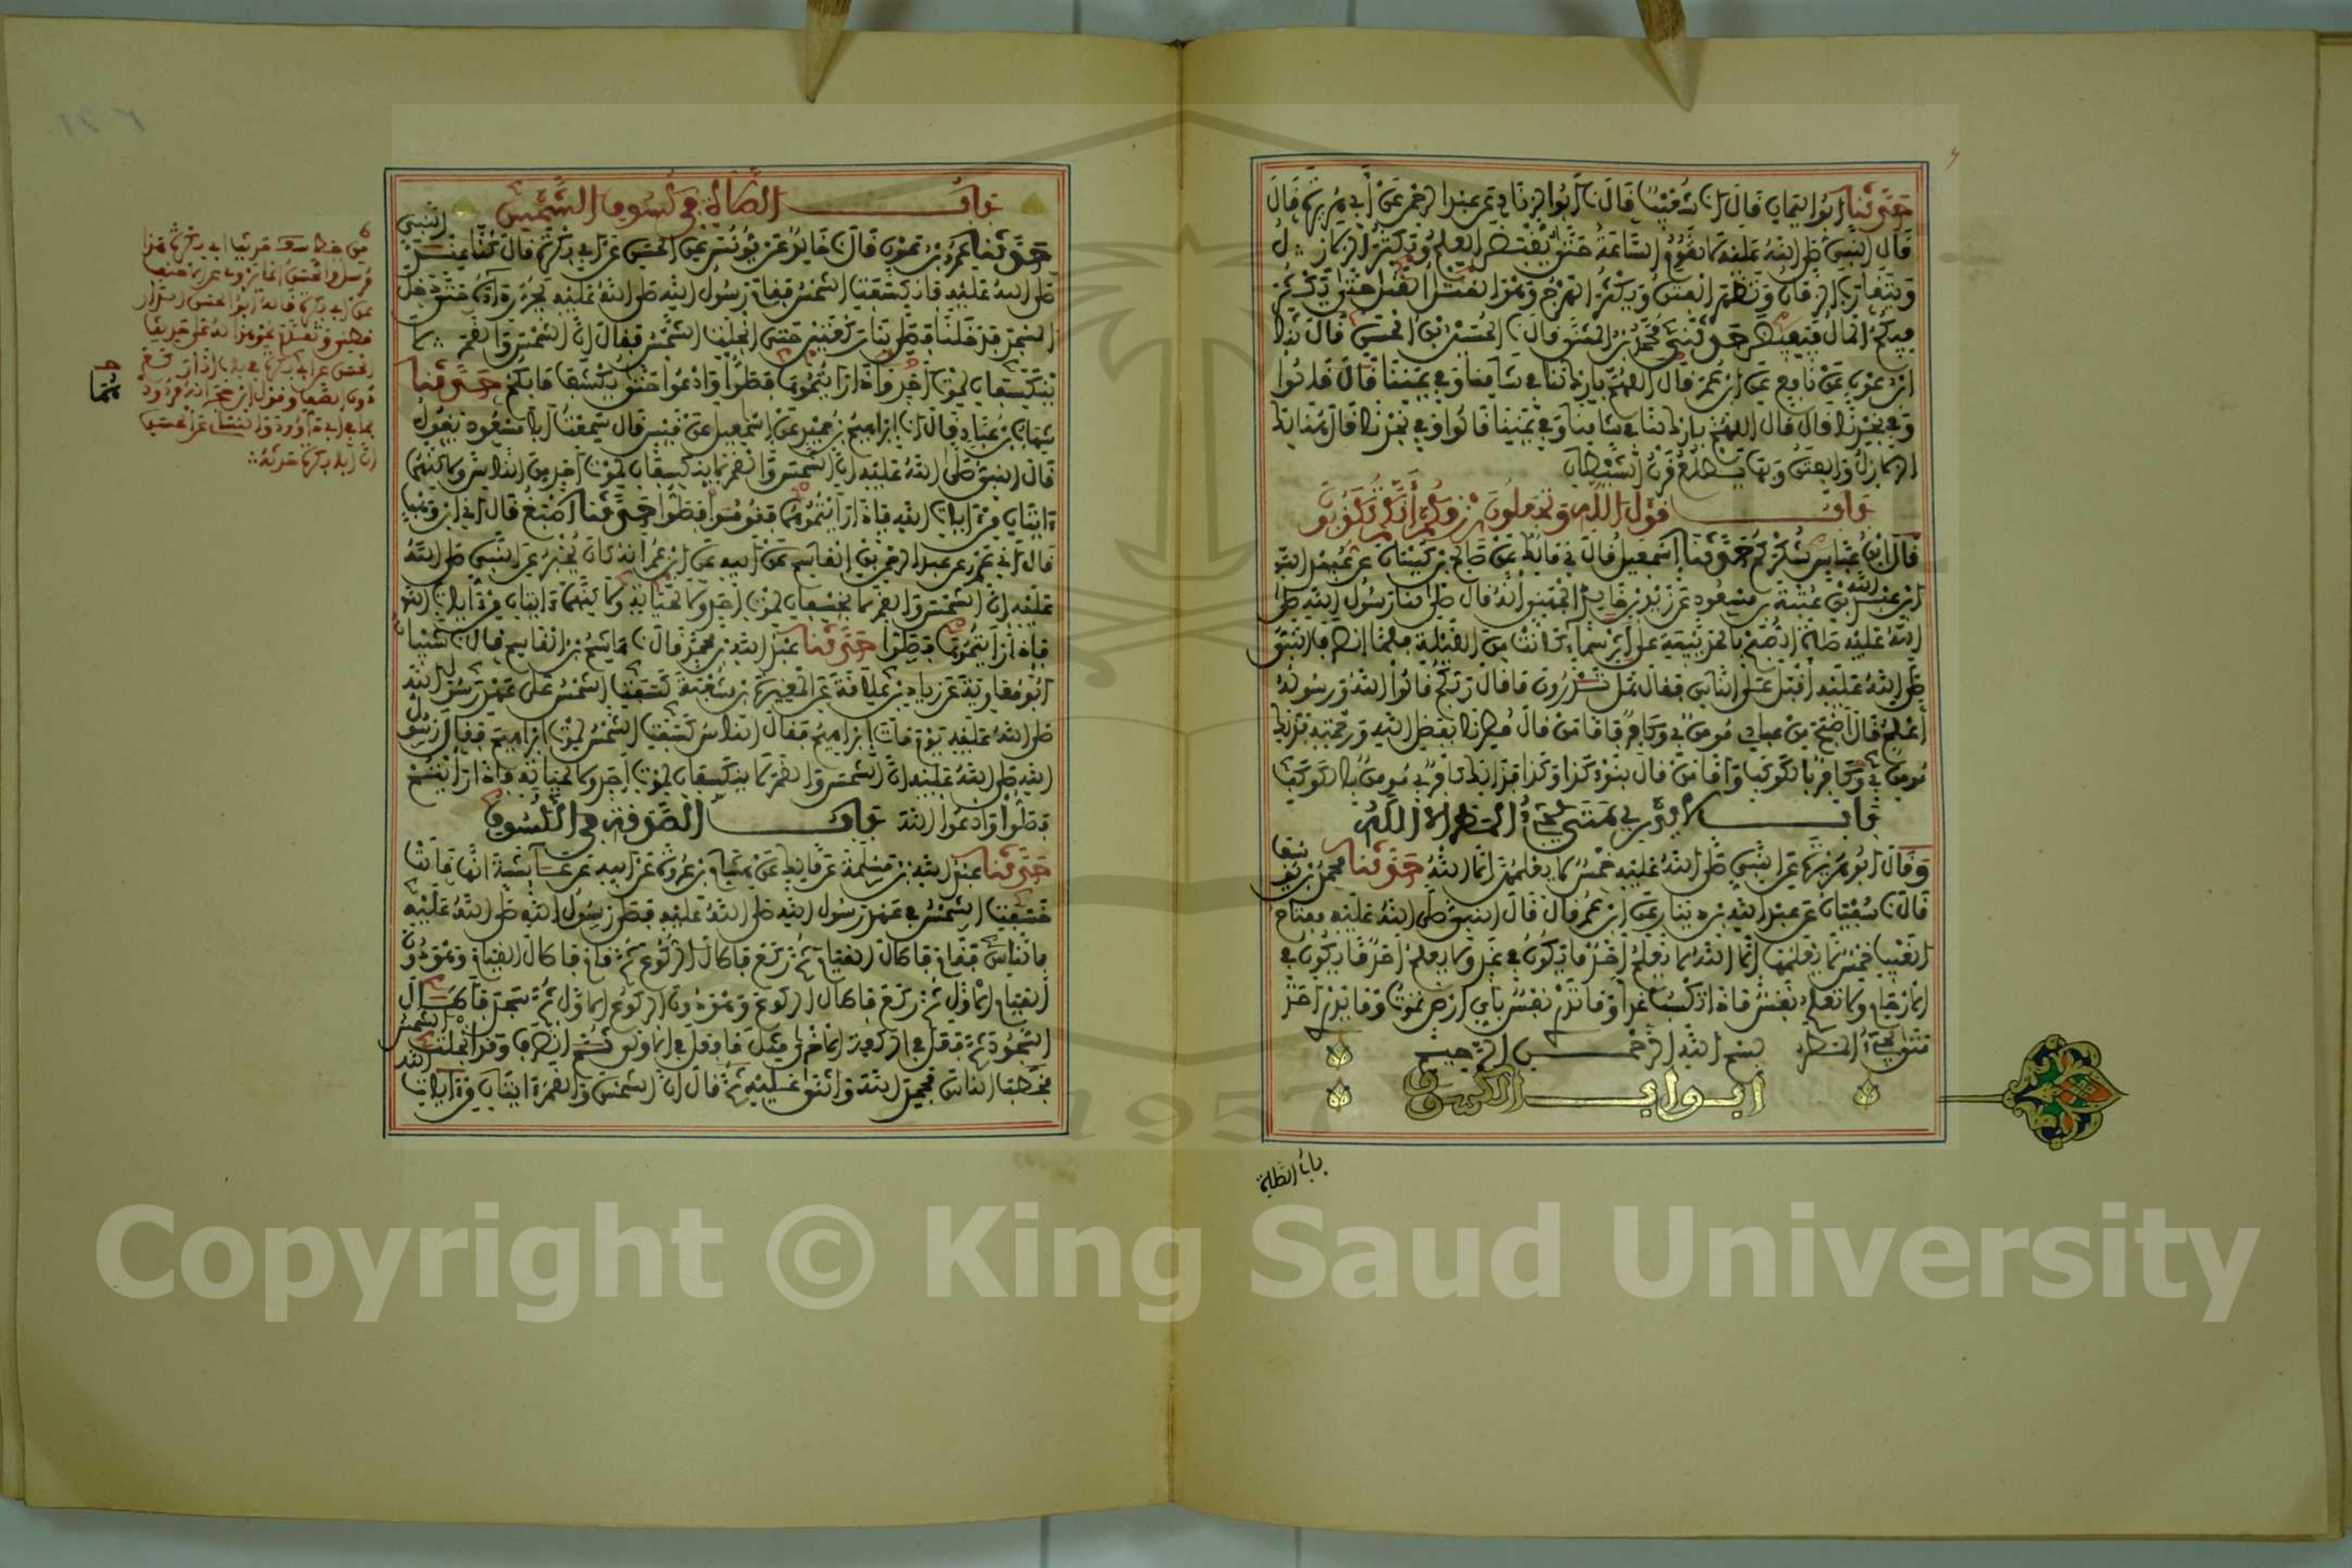 حدثنا أبو اليمان قال أنا شعيب قال نا أبو الزناد عن عبد الرحمن عن أبي هريرة قال
قال النبي صلى الله عليه لا تقوم الساعة حتى يقبض العلم وتكثر الزلازل
ويتقارب الزمان وتظهر الفتن ويكثر الهرج وهو القتل القتل حتى يكثر
فيكم المال فيفيض حدثني محمد بن المثنى قال نا الحسين بن الحسن قال نا
ابن عون عن نافع عن ابن عمر قال اللهم بارك لنا في شامنا وفي يمننا قال قالوا
وفي نجدنا قال قال اللهم بارك لنا في شامنا وفي يمننا قالوا وفي نجدنا قال هنالك
الزلازل والفتن وبها يطلع قرن الشيطان
باب قول الله وتجعلون رزقكم أنكم تكذبون
قال ابن عباس شكركم حدثنا إسمعيل قال ني مالك عن صالح بن كيسان عن عبيد الله
ابن عبد الله بن عتبة بن مسعود عن زيد بن خالد الجهني أنه قال صلى لنا رسول الله صلى
الله عليه صلاة الصبح بالحديبية على إثر سماء كانت من الليلة فلما انصرف النبي
صلى الله عليه أقبل على الناس فقال هل تدرون ماذا قال ربكم قالوا الله ورسوله
أعلم قال أصبح من عبادي مومن بي وكافر فأما من قال مطرنا بفضل الله ورحمته فذلك
مومن بي وكافر بالكوكب وأما من قال بنوء كذا وكذا فذلك كافر بي مومن بالكوكب
باب لا يدري متى يجيء المطر إلا الله
وقال أبو هريرة عن النبي صلى الله عليه خمس لا يعلمهن إلا الله حدثنا محمد بن يوسف
قال نا سفيان عن عبد الله بن دينار عن ابن عمر قال قال النبي صلى الله عليه مفتاح
الغيب خمس لا يعلمها إلا الله لا يعلم أحد ما يكون في غد ولا يعلم أحد ما يكون في
الأرحام ولا تعلم نفس ماذا تكسب غدا وما تدري نفس بأي أرض تموت وما يدري أحد
متى يجيء المطر بسم الله الرحمن الرحيم
أبواب الكسوف
باب الصلاة
باب الصلاة في كسوف الشمس
حدثنا عمرو بن عون قال نا خالد عن يونس عن الحسن عن أبي بكرة قال كنا عند النبي
صلى الله عليه فانكسفت الشمس فقام رسول الله صلى الله عليه يجر رداءه حتى دخل
المسجد فدخلنا فصلى بنا ركعتين حتى انجلت الشمس فقال إن الشمس والقمر لا
ينكسفان لموت أحد فإذا رأيتموها فصلوا وادعوا حتى يكشف ما بكم حدثنا
شهاب بن عباد قال أنا إبراهيم بن حميد عن إسمعيل عن قيس قال سمعت أبا مسعود يقول
قال النبي صلى الله عليه إن الشمس والقمر لا ينكسفان لموت أحد من الناس ولكنهما
ءايتان من ءايات الله فإذا رأيتموهما فقوموا فصلوا حدثنا أصبغ قال أني ابن وهب
قال أني عمرو عن عبد الرحمن بن القاسم عن أبيه عن ابن عمر أنه كان يخبر عن النبي صلى الله
عليه إن الشمس والقمر لا يخسفان لموت أحد ولا لحياته ولكنهما ءايتان من ءايات الله
فإذا رأيتموها فصلوا حدثنا عبد الله بن محمد قال نا هاشم بن القاسم قال نا شيبان
أبو معاوية عن زياد بن علاقة عن المغيرة بن شعبة كسفت الشمس على عهد رسول الله
صلى الله عليه يوم مات إبراهيم فقال الناس كسفت الشمس لموت إبراهيم فقال رسول
الله صلى الله عليه إن الشمس والقمر لا ينكسفان لموت أحد ولا لحياته فإذا رأيتم
فصلوا وادعوا الله باب الصدقة في الكسوف
حدثنا عبد الله بن مسلمة عن مالك عن هشام بن عروة عن أبيه عن عائشة أنها قالت
خسفت الشمس في عهد رسول الله صلى الله عليه فصلى رسول الله صلى الله عليه
بالناس فقام فأطال القيام ثم ركع فأطال الركوع ثم قام فأطال القيام وهو دون
القيام الأول ثم ركع فأطال الركوع وهو دون الركوع الأول ثم سجد فأطال
السجود ثم فعل في الركعة الأخرى مثل ما فعل في الأولى ثم انصرف وقد انجلت الشمس
فخطب الناس فحمد الله وأثنى عليه ثم قال إن الشمس والقمر ءايتان من ءايات الله
Copyright © King Saud University
1957